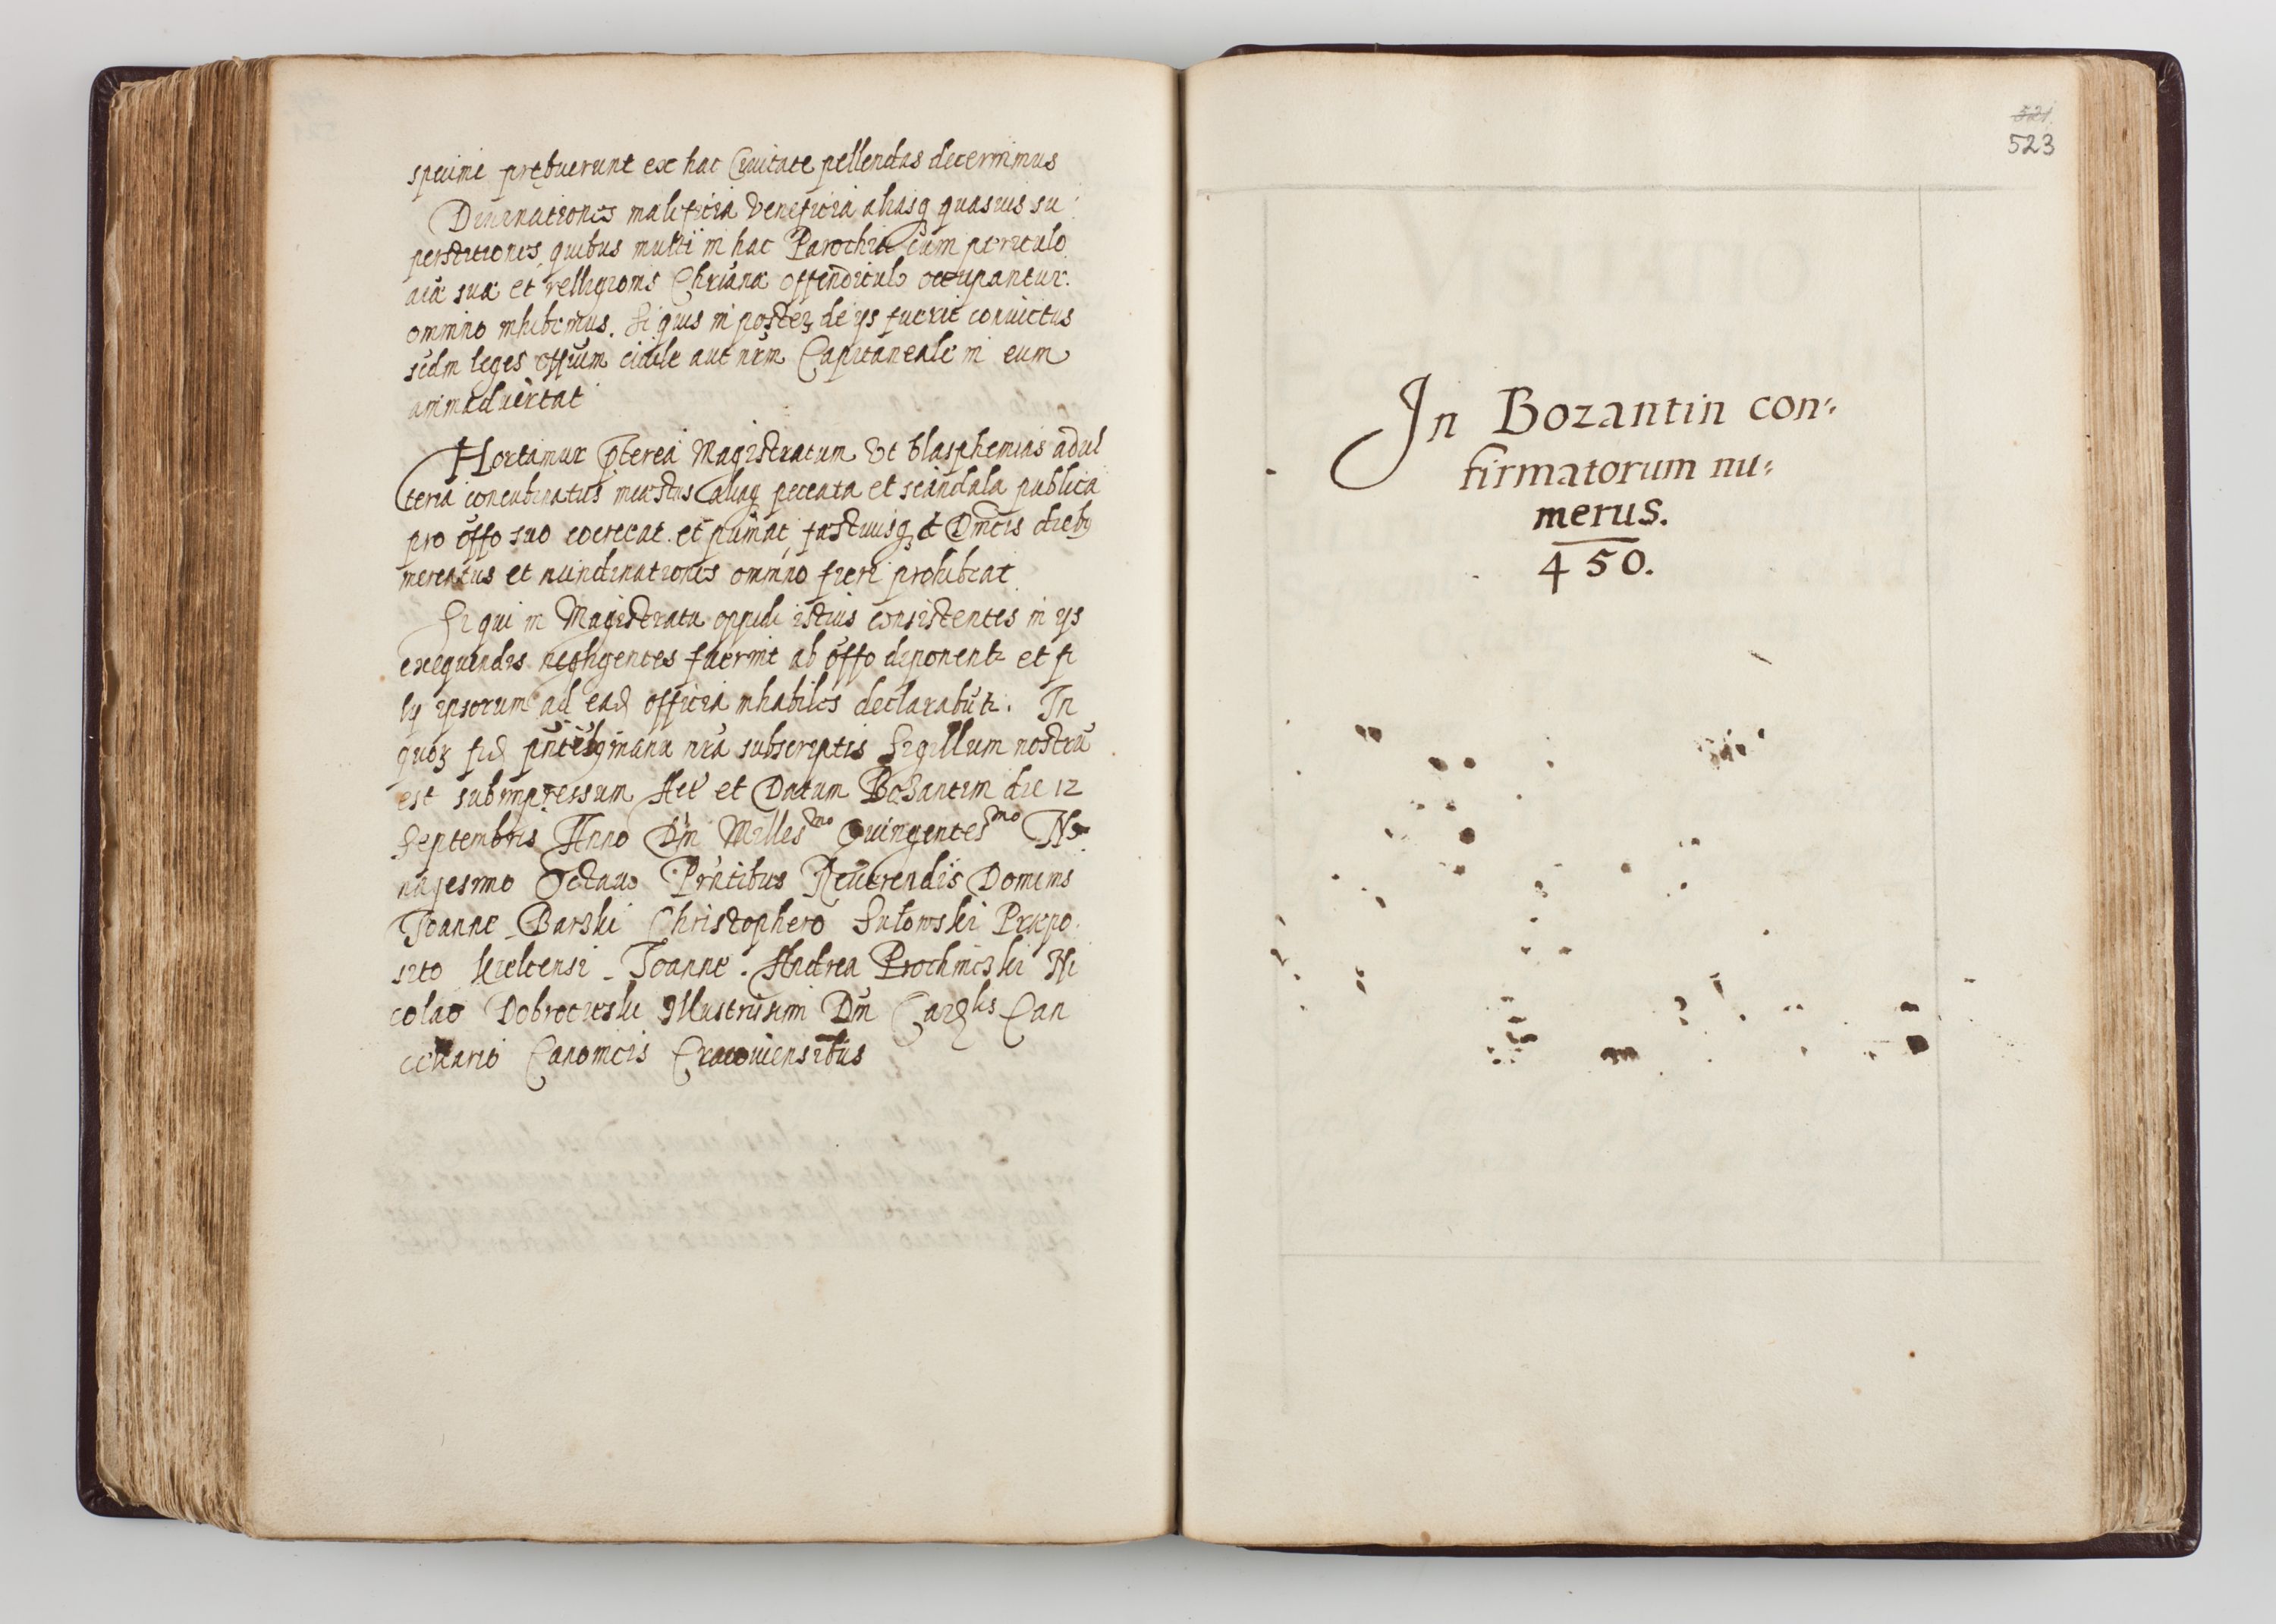 specimē prębuerunt ex hac Ciuitate pellendas decernimus
Diuinationes maleficia Veneficia aliasq quasuis su
perstitiones quibus multi in hac Parochia cum periculo
aīā suā et relligionis Chrīanā offendiculo occupantur.
omnino inhibemus. Si quis in poster de ijs fuerit conuictus
scdm leges offium ciuile aut nrm Capitaneale in eum
animaduertat
Hortamur pterea Magistratum Vt blasphemias adul
teria concubinatus incestus aliaq peccata et scandala publica
pro offo suo coerceat et puniat, festiuisq et Dnicis dieb9
mercatus et nundinationes omnino fieri prohibeat
Si qui in Magistratu oppidi istius consistentes in ijs
exequendis negligentes fuerint ab offo deponentr et fi
lij ipsorum ad ead officia inhabiles declarabutr. In
quor fid pntib9 manu nra subscriptis Sigillum nostrū
est subimpressum Act et Datum Bozantin die 12
Septembris Anno Dni Milles^mo Quingentes^mo No
nagesimo Octauo Prntibus Reuerendis Dominis
Joanne Barski Christophero Sułowski Præpo
sito Kielcensi Joanne Andrea Prochnicski Ni
colao Dobrocieski Illustrissimi Dni Cardlis Can
cellario Canonicis Cracouiensibus
521
523
In Bozantin con⸗
firmatorum nu⸗
merus.
450.